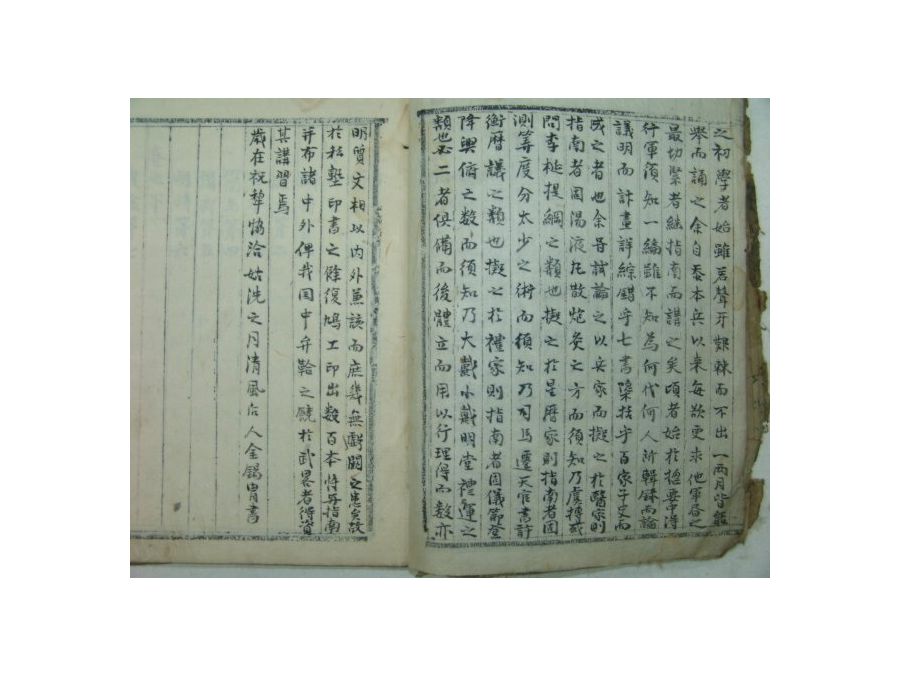 之初學者始雖苦聲牙難棘而不出一兩月皆能
擧而誦之余自忝本兵以來每欲更求他軍器之
最切緊者繼指南而講之矣頃者始於摠要中得
行軍須知一編雖不知為何代何人所輯錄而論
議明而計畫詳綜錯乎七書檃括乎百家子史而
成之者也余嘗試論之以兵家而擬之於醫家則
指南者固湯液丸散炮灸之方而須知乃虞摶或
問李梴提綱之類也擬之於星曆家則指南者固
測筭度分太少之術而須知乃司馬遷天官書評
衡曆議之類也擬之於禮家則指南者固儀節登
降興俯之数而須知乃大戴小戴明堂禮運之
類也必二者俱備而後體立而用以行理得而数亦
明質文相以內外兼該而庶幾無虧闕之患矣故
於私塾印書之餘復鳩工印出数百本將與指南
并布諸中外俾我国中弁鞈之饒於武畧者得資
其講習焉
歲在祝犁協洽姑洗之月清風后人金錫胄書